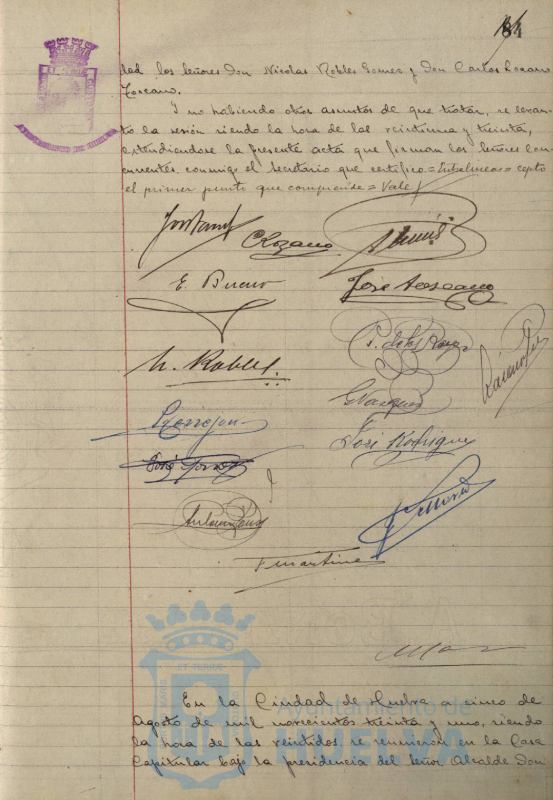 84
dad los señores Don Nicolas Robles Gomez y Don Carlos Lozano
Toscano.
Y no habiendo otros asuntos de que tratar, se levan-
to la sesión siendo la hora de las veintiuna y treinta,
extendiendose la presente acta que firman los señores con-
currentes conmigo el Secretario que certifico = Entrelineas = cepto
el primer punto que comprende = Vale
C Lozano
E. Bueno
José Toscano
N. Robles
G Vazquez
Terrejon
José Rodriguez
José Torres
F Martinez
PORTUS MARIS ET TERRAE CUSTODIA
Ayuntamiento de
HUELVA
En la Ciudad de Huelva a cinco de
Agosto de mil novecientos treinta y uno, siendo
la hora de las veintidos, se reunieron en la Casa
Capitular bajo la presidencia del Señor Alcalde Don